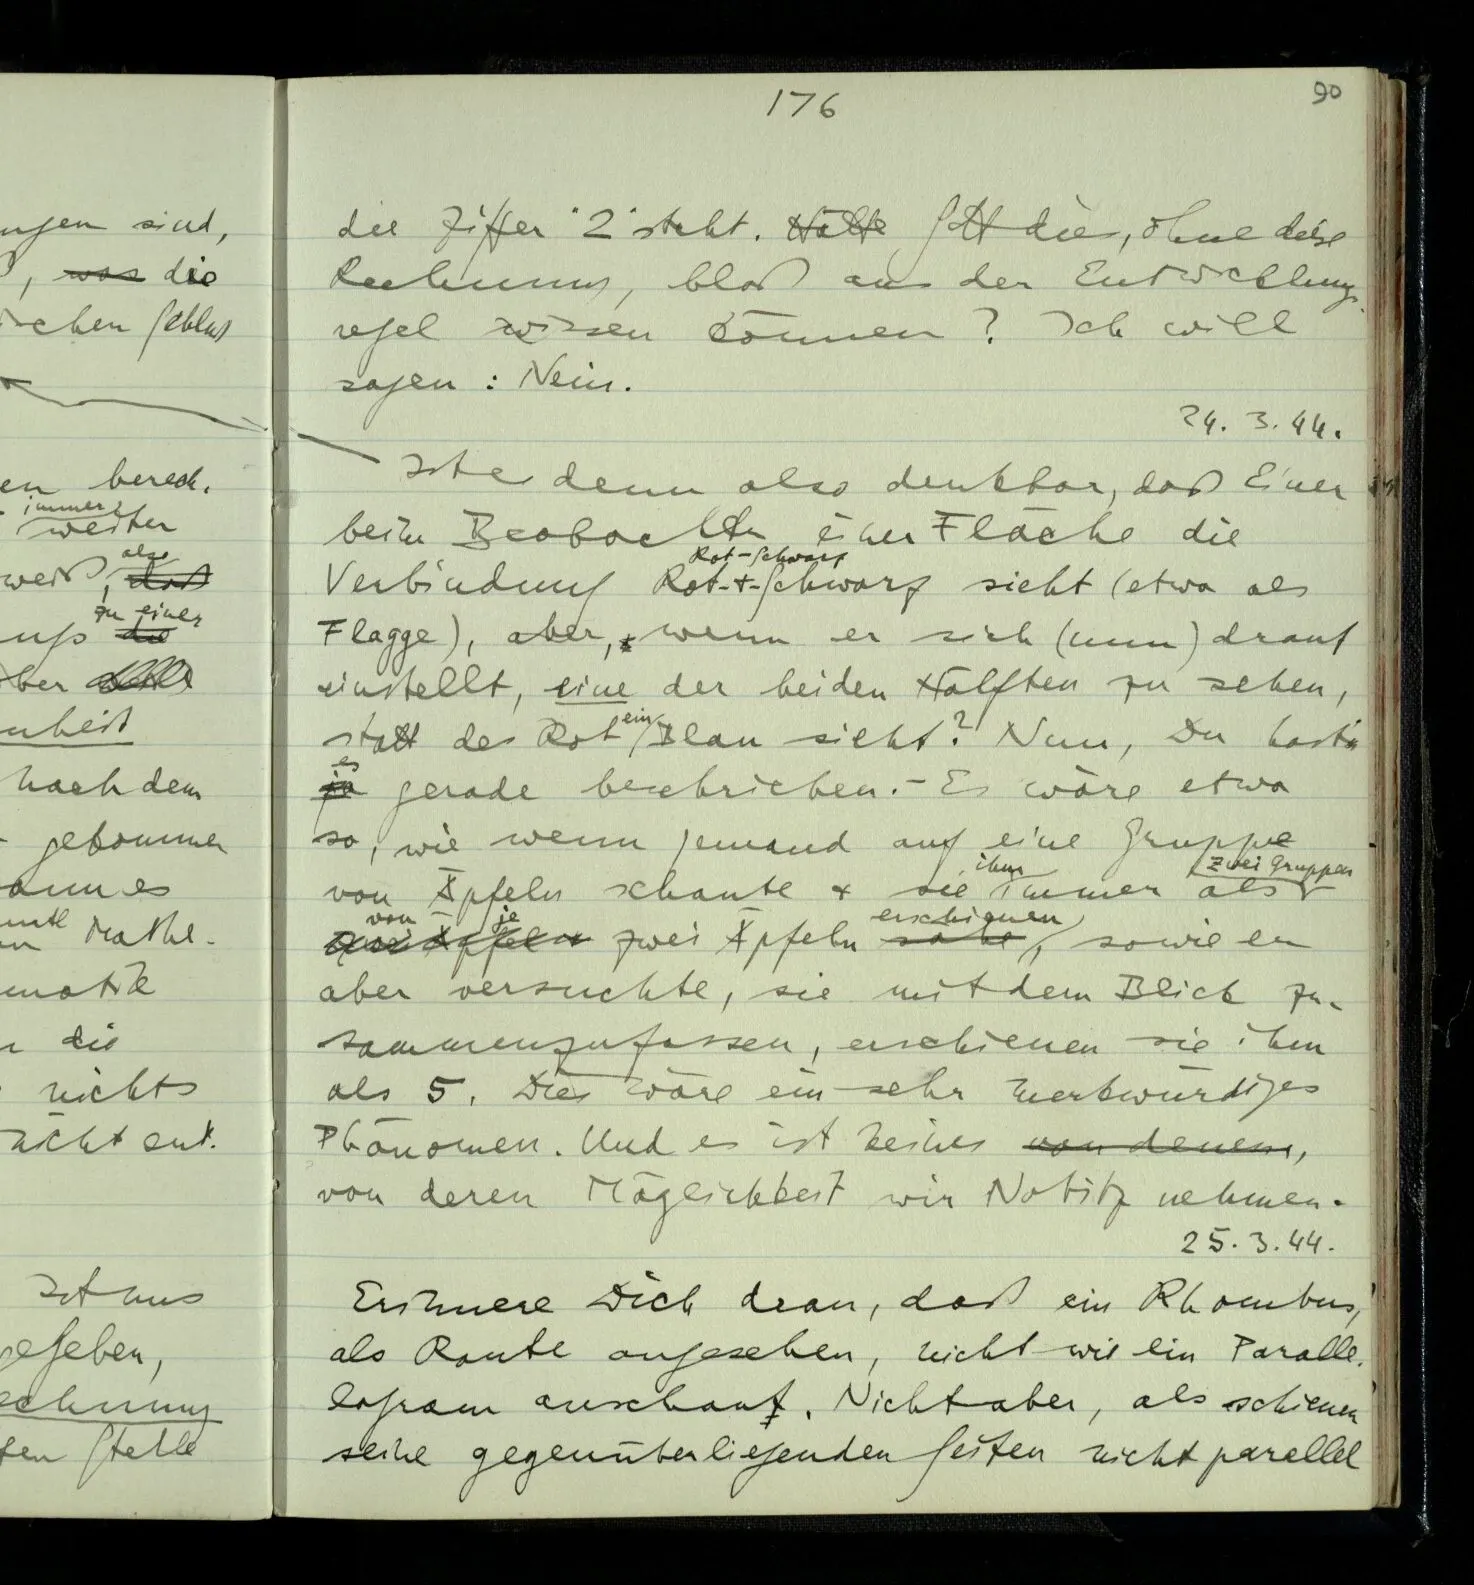 176
90
ungen sind,
, was die
ischen Schluß
en berech.
immer
weiter
also
weiß, daß
zu einer
uß die
ber
nheit
nach dem
gekommen
ann es
Mathe-
matik
die
nichts
nicht ent.
Ist uns
gegeben,
echnung
ten Stelle
die Ziffer "2" steht. Hätte Gott dies, ohne diese
Rechnung, bloß aus der Entwicklungs-
regel wissen können? Ich will
sagen: Nein.
24. 3. 44.
Ist es denn also denkbar, daß Einer
beim Beobachten einer Fläche die
Rot-Schwarz
Verbindung Rot-+-Schwarz sieht (etwa als
Flagge), aber, wenn er sich (nun) drauf
einstellt, eine der beiden Hälften zu sehen,
statt des Rot ein Blau sieht? Nun, Du hast's
es
ja gerade beschrieben.– Es wäre etwa
so, wie wenn jemand auf eine Gruppe
ihm zwei Gruppen
von Äpfeln schaute & sie immer als
von je erschienen
zwei Äpfel & zwei Äpfeln sähe, sowie er
aber versuchte, sie mit dem Blick zu-
sammenzufassen, erschienen sie ihm
als 5. Dies wäre ein sehr merkwürdiges
Phänomen. Und es ist keines von denen,
von deren Möglichkeit wir Notitz nehmen.
25. 3. 44.
Erinnere Dich dran, daß ein Rhombus,
als Raute angesehen, nicht wie ein Paralle-
logram ausschaut. Nicht aber, als schienen
seine gegenüberliegenden Seiten nicht parallel